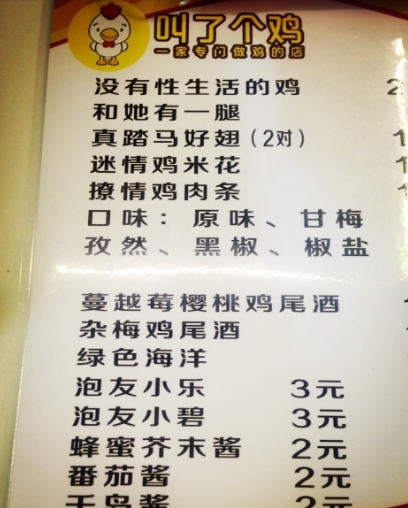 叫了个鸡
一家专门做鸡的店
没有性生活的鸡 2
和她有一腿
真踏马好翅(2对) 1
迷情鸡米花 1
撩情鸡肉条 1
口味：原味、甘梅
孜然、黑椒、椒盐
蔓越莓樱桃鸡尾酒
杂梅鸡尾酒
绿色海洋
泡友小乐 3元
泡友小碧 3元
蜂蜜芥末酱 2元
番茄酱 2元
千岛酱 2元